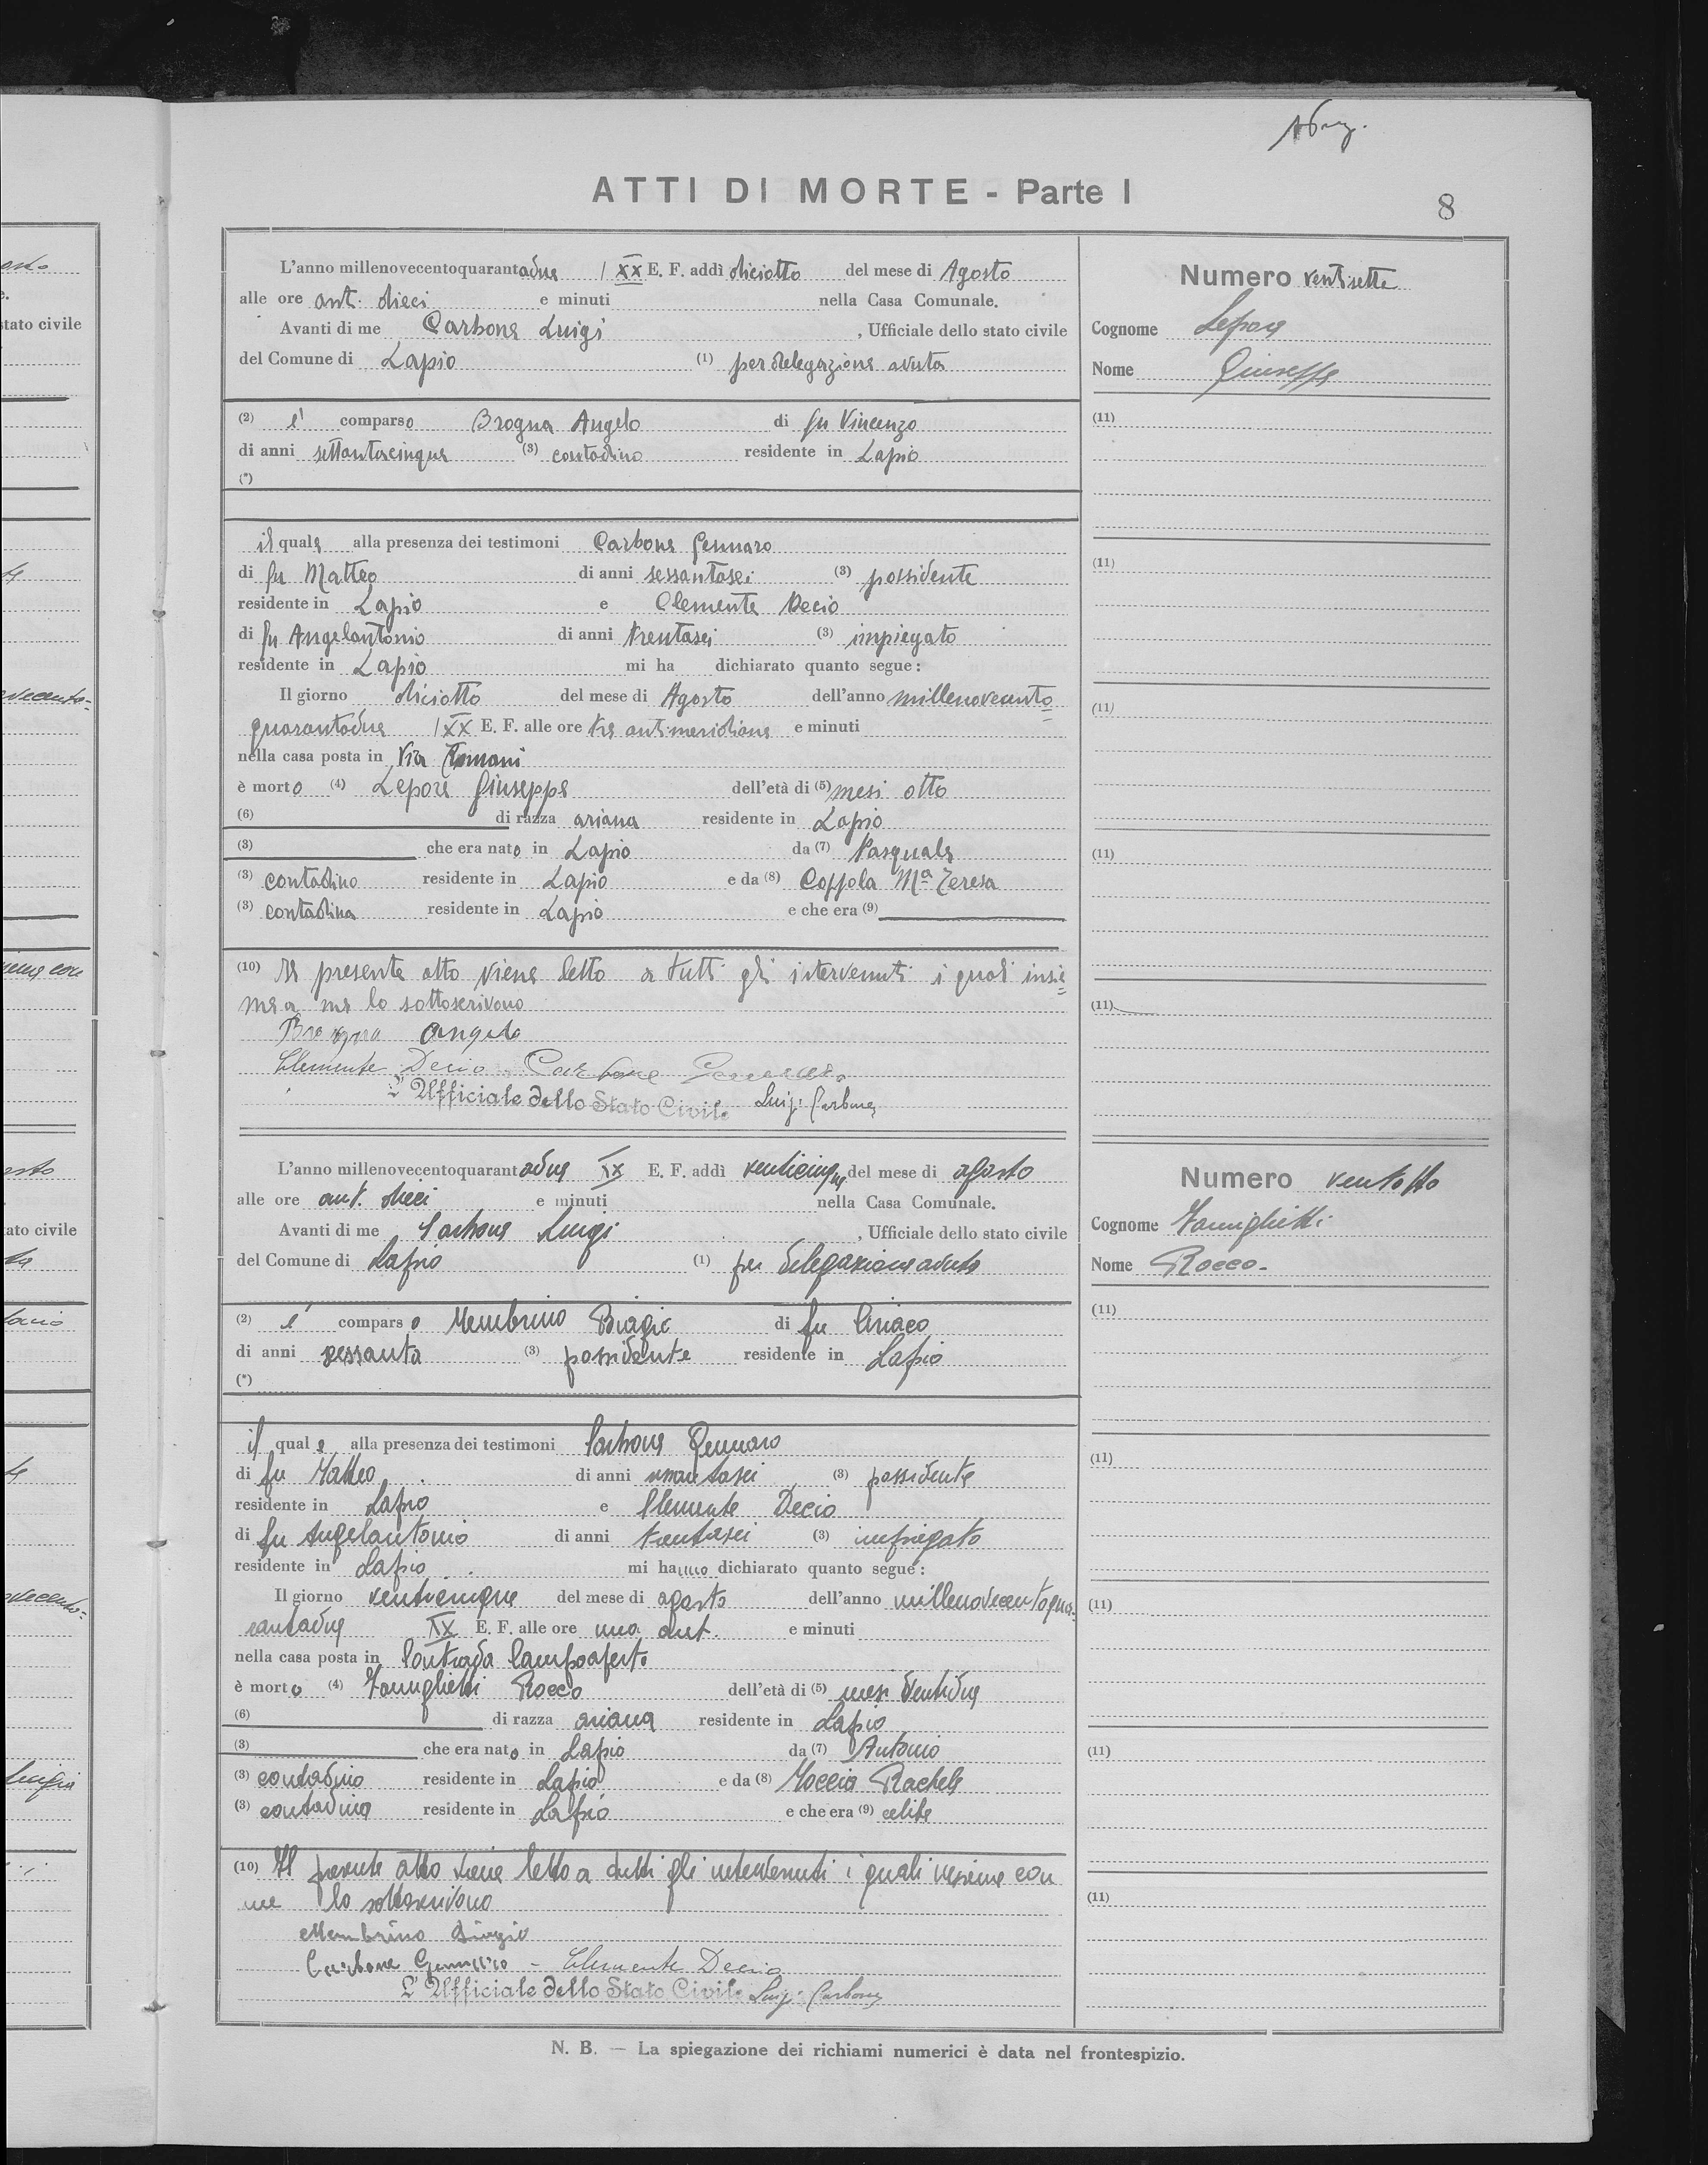 ATTI DI MORTE - Parte I
8
L'anno millenovecentoquarantadue XX E. F. addì diciotto del mese di Agosto
alle ore ant. dieci e minuti nella Casa Comunale.
Avanti di me Carbone Luigi , Ufficiale dello stato civile
del Comune di Lapio (1) per delegazione avuta
(2) è comparso Brogna Angelo di fu Vincenzo
di anni settantacinque (3) contadino residente in Lapio
(*)
il quale alla presenza dei testimoni Carbone Gennaro
di fu Matteo di anni sessantasei (3) possidente
residente in Lapio e Clemente Decio
di fu Angelantonio di anni trentasei (3) impiegato
residente in Lapio mi ha dichiarato quanto segue:
Il giorno diciotto del mese di Agosto dell'anno millenovecento=
quarantadue XX E. F. alle ore tre antimeridiane e minuti
nella casa posta in Via
è morto (4) Lepore Giuseppe dell'età di (5) mesi otto
(6) di razza ariana residente in Lapio
(3) che era nato in Lapio da (7) Pasquale
(3) contadino residente in Lapio e da (8) Coppola Mª Teresa
(3) contadina residente in Lapio e che era (9)
(10) Il presente atto viene letto a tutti gli intervenuti i quali insie=
me a me lo sottoscrivono
Brogna Angelo
Clemente Decio Carbone Gennaro
L'Ufficiale dello Stato Civile Luigi Carbone
Numero ventisette
Cognome Lepore
Nome Giuseppe
(11)
(11)
(11)
(11)
(11)
L'anno millenovecentoquarantadue XX E. F. addì venticinque del mese di agosto
alle ore ant. dieci e minuti nella Casa Comunale.
Avanti di me Carbone Luigi , Ufficiale dello stato civile
del Comune di Lapio (1) per delegazione avuta
(2) è comparso Membrino Biagio di fu Ciriaco
di anni sessanta (3) possidente residente in Lapio
(*)
il quale alla presenza dei testimoni Carbone Gennaro
di fu Matteo di anni sessantasei (3) possidente
residente in Lapio e Clemente Decio
di fu Angelantonio di anni trentasei (3) impiegato
residente in Lapio mi hanno dichiarato quanto segue:
Il giorno venticinque del mese di agosto dell'anno millenovecentoqua-
rantadue XX E. F. alle ore una ant. e minuti
nella casa posta in Contrada Campoaperto
è morto (4) Famiglietti Rocco dell'età di (5) mesi ventidue
(6) di razza ariana residente in Lapio
(3) che era nato in Lapio da (7) Antonio
(3) contadino residente in Lapio e da (8) Moccia Rachele
(3) contadina residente in Lapio e che era (9) celibe
(10) Il presente atto viene letto a tutti gli intervenuti i quali insieme con
me lo sottoscrivono
Membrino Biagio
Carbone Gennaro - Clemente Decio
L'Ufficiale dello Stato Civile Luigi Carbone
Numero ventotto
Cognome Famiglietti
Nome Rocco.
(11)
(11)
(11)
(11)
(11)
N. B. — La spiegazione dei richiami numerici è data nel frontespizio.